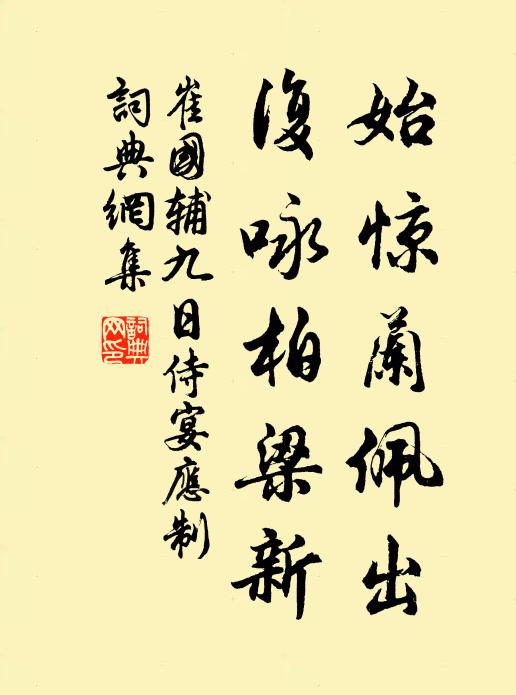 始惊蘭佩出
復咏柏梁新
崔國辅九日侍宴應制
詞典網集
詞典网印